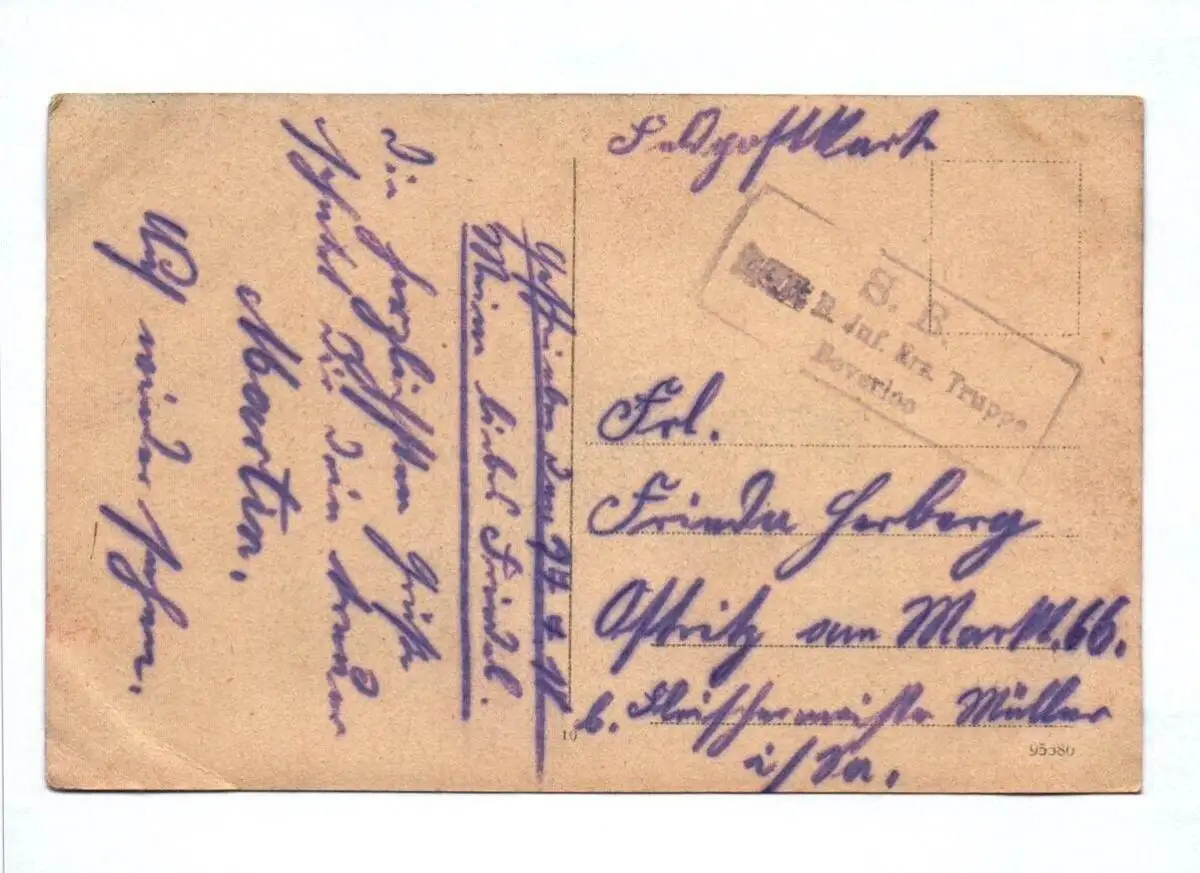 Feldpostkarte
S. B.
B. Inf. Erz. Truppe
Beverloo
Frl.
Frieda Herberg
Ostritz am Markt. 66.
b. Fleischermeister Müller
i/Sa.
Geschrieben den
Mein liebes Friedel.
Die herzlichsten Grüße
sendet Dir Dein treuer
Martin.
Auf wieder sehen.
10
95580